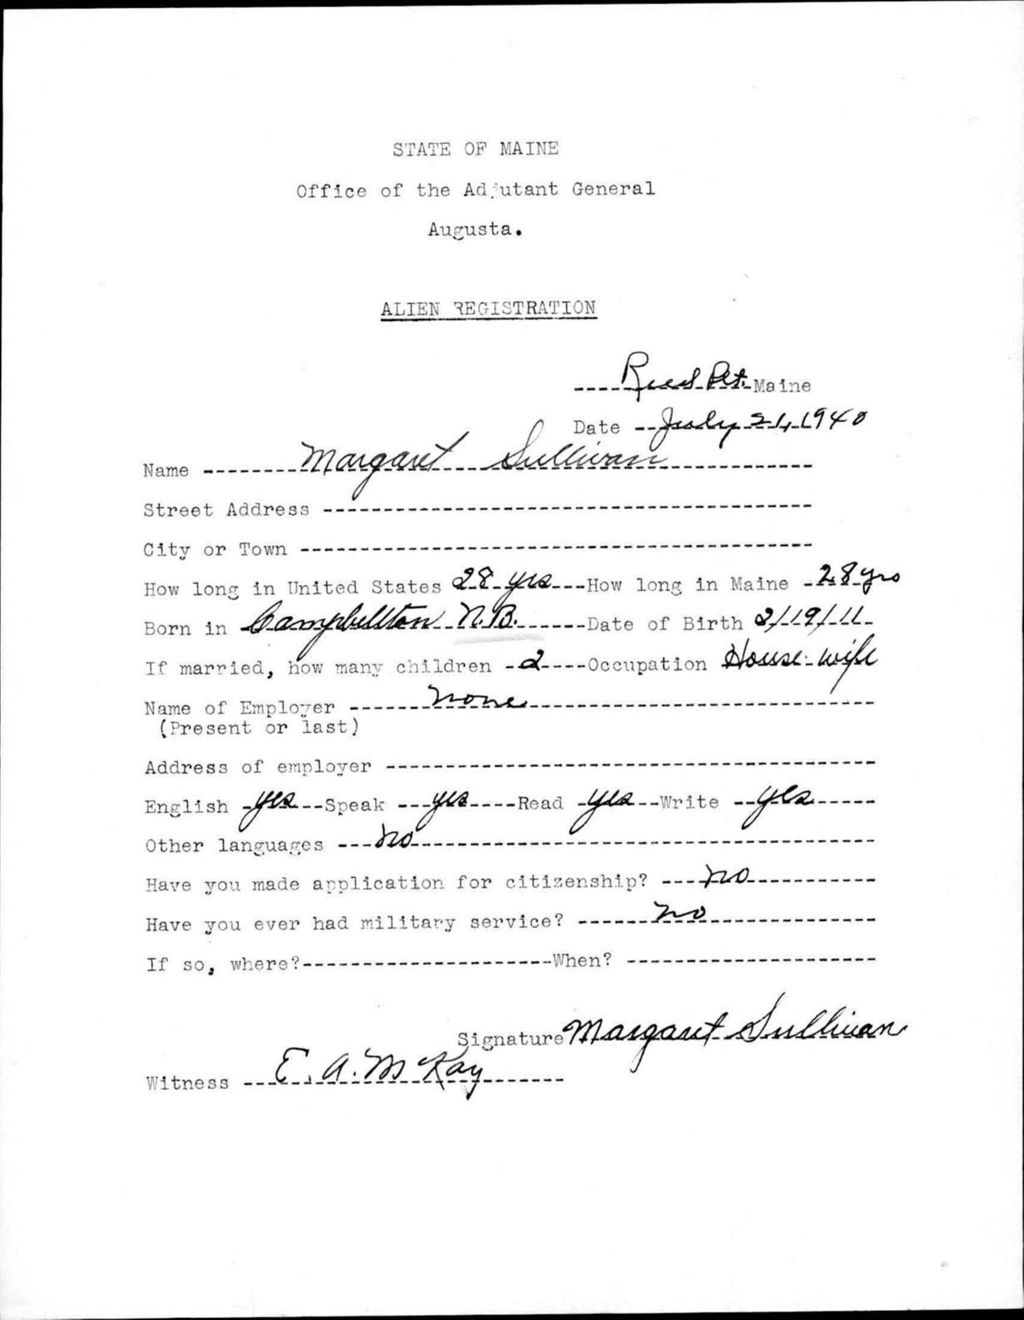 STATE OF MAINE
Office of the Adjutant General
Augusta.
ALIEN REGISTRATION
Reed Plt. Maine
Date July 21, 1940
Name Margaret Sullivan
Street Address
City or Town
How long in United States 28 yrs How long in Maine 28 yrs
Born in Campbellton N.B. Date of Birth 2/19/11
If married, how many children 2 Occupation House wife
Name of Employer none
(Present or last)
Address of employer
English yes Speak yes Read yes Write yes
Other languages no
Have you made application for citizenship? no
Have you ever had military service? no
If so, where? When?
Signature Margaret Sullivan
Witness E. A. McKay